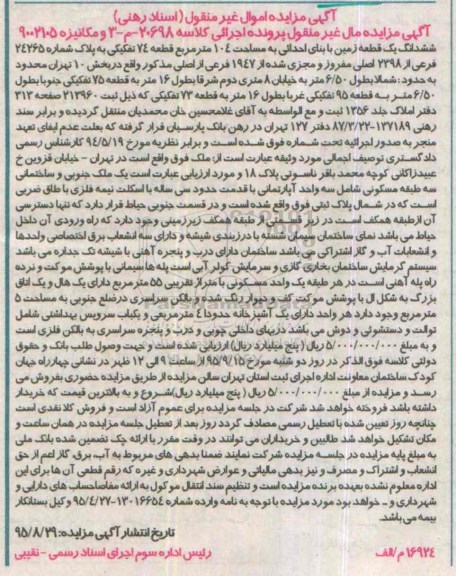 آگهی مزایده اموال غیر منقول (اسناد رهنی)
آگهی مزایده مال غیر منقول پرونده اجرائی کلاسه ۲۰۶۹۸-م-۳ و مکانیزه ۹۰۰۲۱۰۵
ششدانگ یک قطعه زمین با بنای احداثی به مساحت ۱۰۴ مترمربع قطعه ۷۴ تفکیکی به پلاک شماره ۲۴۲۶۵
فرعی از ۲۳۹۸ اصلی مفروز و مجزی شده از ۱۹۴۷ فرعی از اصلی مذکور واقع دربخش ۱۰ تهران محدود
به حدود: شمالا بطول ۶/۵۰ متر به خیابان ۸ متری دوم شرقا بطول ۱۶ متر به قطعه ۷۵ تفکیکی جنوبا بطول
۶/۵۰ متر به قطعه ۹۵ تفکیکی غربا بطول ۱۶ متر به قطعه ۷۳ تفکیکی که ذیل ثبت ۲۱۳۹۶۰ صفحه ۳۱۳
دفتر املاک جلد ۱۳۵۶ ثبت و مع الواسطه به آقای غلامحسین خان محمدیان منتقل گردیده و برابر سند
رهنی ۱۳۷۱۸۹-۸۷/۳/۲۲ دفتر ۱۲۷ تهران در رهن بانک پارسیان قرار گرفته که بعلت عدم ایفای تعهد
منجر به صدور اجرائیه تحت شماره فوق شده است و برابر نظریه مورخ ۹۴/۵/۱۹ کارشناس رسمی
دادگستری توصیف اجمالی مورد وثیقه عبارت است از: ملک فوق واقع است در تهران - خیابان قزوین خ
عبیدزاکانی کوچه محمد باقر ناسوتی پلاک ۱۸ و مورد ارزیابی عبارت است یک ملک جنوبی و ساختمانی
سه طبقه مسکونی شامل سه واحد آپارتمانی با قدمت حدود سی ساله با اسکلت نیمه فلزی با طاق ضربی
است که در شمال پلاک ثبتی فوق واقع شده است و در قسمت جنوبی حیاط قرار دارد که تنها دسترسی
آن از طبقه همکف است در زیر قسمتی از طبقه همکف زیرزمینی وجود دارد که راه ورودی آن داخل
حیاط می باشد نمای ساختمان سیمان شسته با درزبندی شیشه و دارای سه انشعاب برق اختصاصی واحدها
و انشعابات آب و گاز اشتراکی می باشد ساختمان دارای درب و پنجره آهنی با شیشه تک جداره می باشد
سیستم گرمایش ساختمان بخاری گازی و سرمایش کولر آبی است پله ها سیمانی با پوشش موکت و نرده
راه پله آهنی است در هر طبقه یک واحد مسکونی با متراژ تقریبی ۵۵ مترمربع دارای یک هال و یک اتاق
بزرگ به شکل ال با پوشش موکت کف و دیوار رنگ شده و بالکن سراسری در ضلع جنوبی به مساحت ۵
مترمربع وجود دارد هر واحد دارای یک آشپزخانه حدودا ۴ مترمربعی و یکباب سرویس بهداشتی شامل
توالت و دستشوئی و دوش می باشد دربهای داخلی چوبی و درب و پنجره سراسری به بالکن فلزی است
و به مبلغ ۵/۰۰۰/۰۰۰/۰۰۰ ریال (پنج میلیارد ریال) ارزیابی شده است و جهت وصول طلب بانک و حقوق
دولتی کلاسه فوق الذکر در روز دو شنبه مورخ ۹۵/۹/۱۵ از ساعت ۹ الی ۱۲ ظهر در نشانی چهارراه جهان
کودک ساختمان معاونت اداره اجرای ثبت استان تهران سالن مزایده از طریق مزایده حضوری بفروش می
رسد و مزایده از مبلغ ۵/۰۰۰/۰۰۰/۰۰۰ ریال (پنج میلیارد ریال) شروع و به بالاترین قیمت که خریدار
داشته باشد فروخته خواهد شد شرکت در جلسه مزایده برای عموم آزاد است و فروش کلا نقدی است
چنانچه روز تعیین شده با تعطیل رسمی مصادف گردد روز بعد از تعطیل جلسه مزایده در همان ساعت و
مکان تشکیل خواهد شد طالبین و خریداران می توانند در وقت مقرر با ارائه چک تضمین شده بانک ملی
به مبلغ پایه مزایده در جلسه مزایده شرکت نمایند ضمنا بدهی های مربوط به آب، برق، گاز اعم از حق
انشعاب و اشتراک و مصرف و نیز بدهی مالیاتی و عوارض شهرداری و غیره که رقم قطعی آن ها برای این
اداره معلوم نشده بعهده برنده مزایده است و تنظیم سند انتقال موکول به ارائه مفاصاحساب های دارایی و
شهرداری و ـ خواهد بود مورد مزایده با توجه به نامه وارده شماره ۱۳۰۱۶۶۵۴-۹۵/۴/۲۷ وکیل بستانکار
بیمه می باشد.
تاریخ انتشار آگهی مزایده: ۹۵/۸/۲۹
۱۶۹۲۴ م/الف رئیس اداره سوم اجرای اسناد رسمی - نقیبی